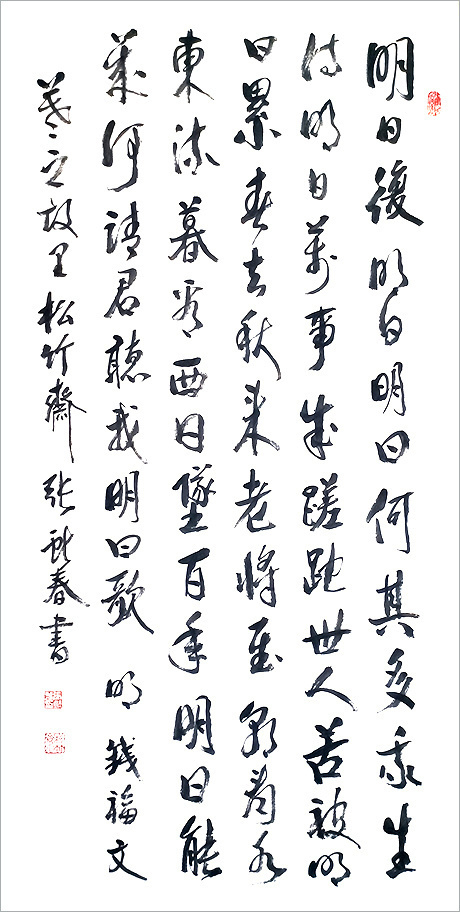 明日復明日明日何其多我生
待明日萬事成蹉跎世人苦被明
日累春去秋来老將至朝看水
東流暮看西日墜百年明日能
幾何請君聽我明日歌 明 錢福文
羲之故里松竹齋 张春書